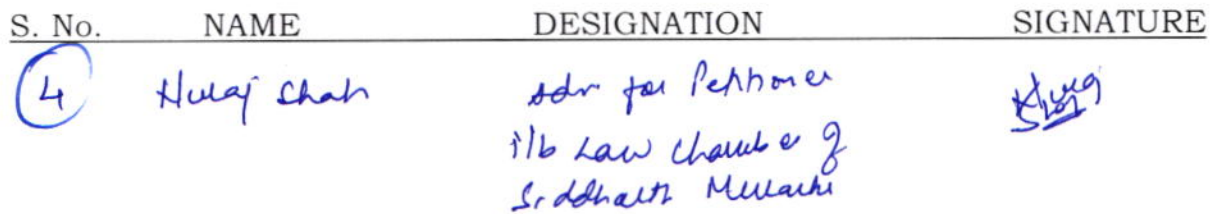 S. No. NAME DESIGNATION SIGNATURE
4 Shah Adv for Petitioner
i/b Law Chamber of
Siddharth